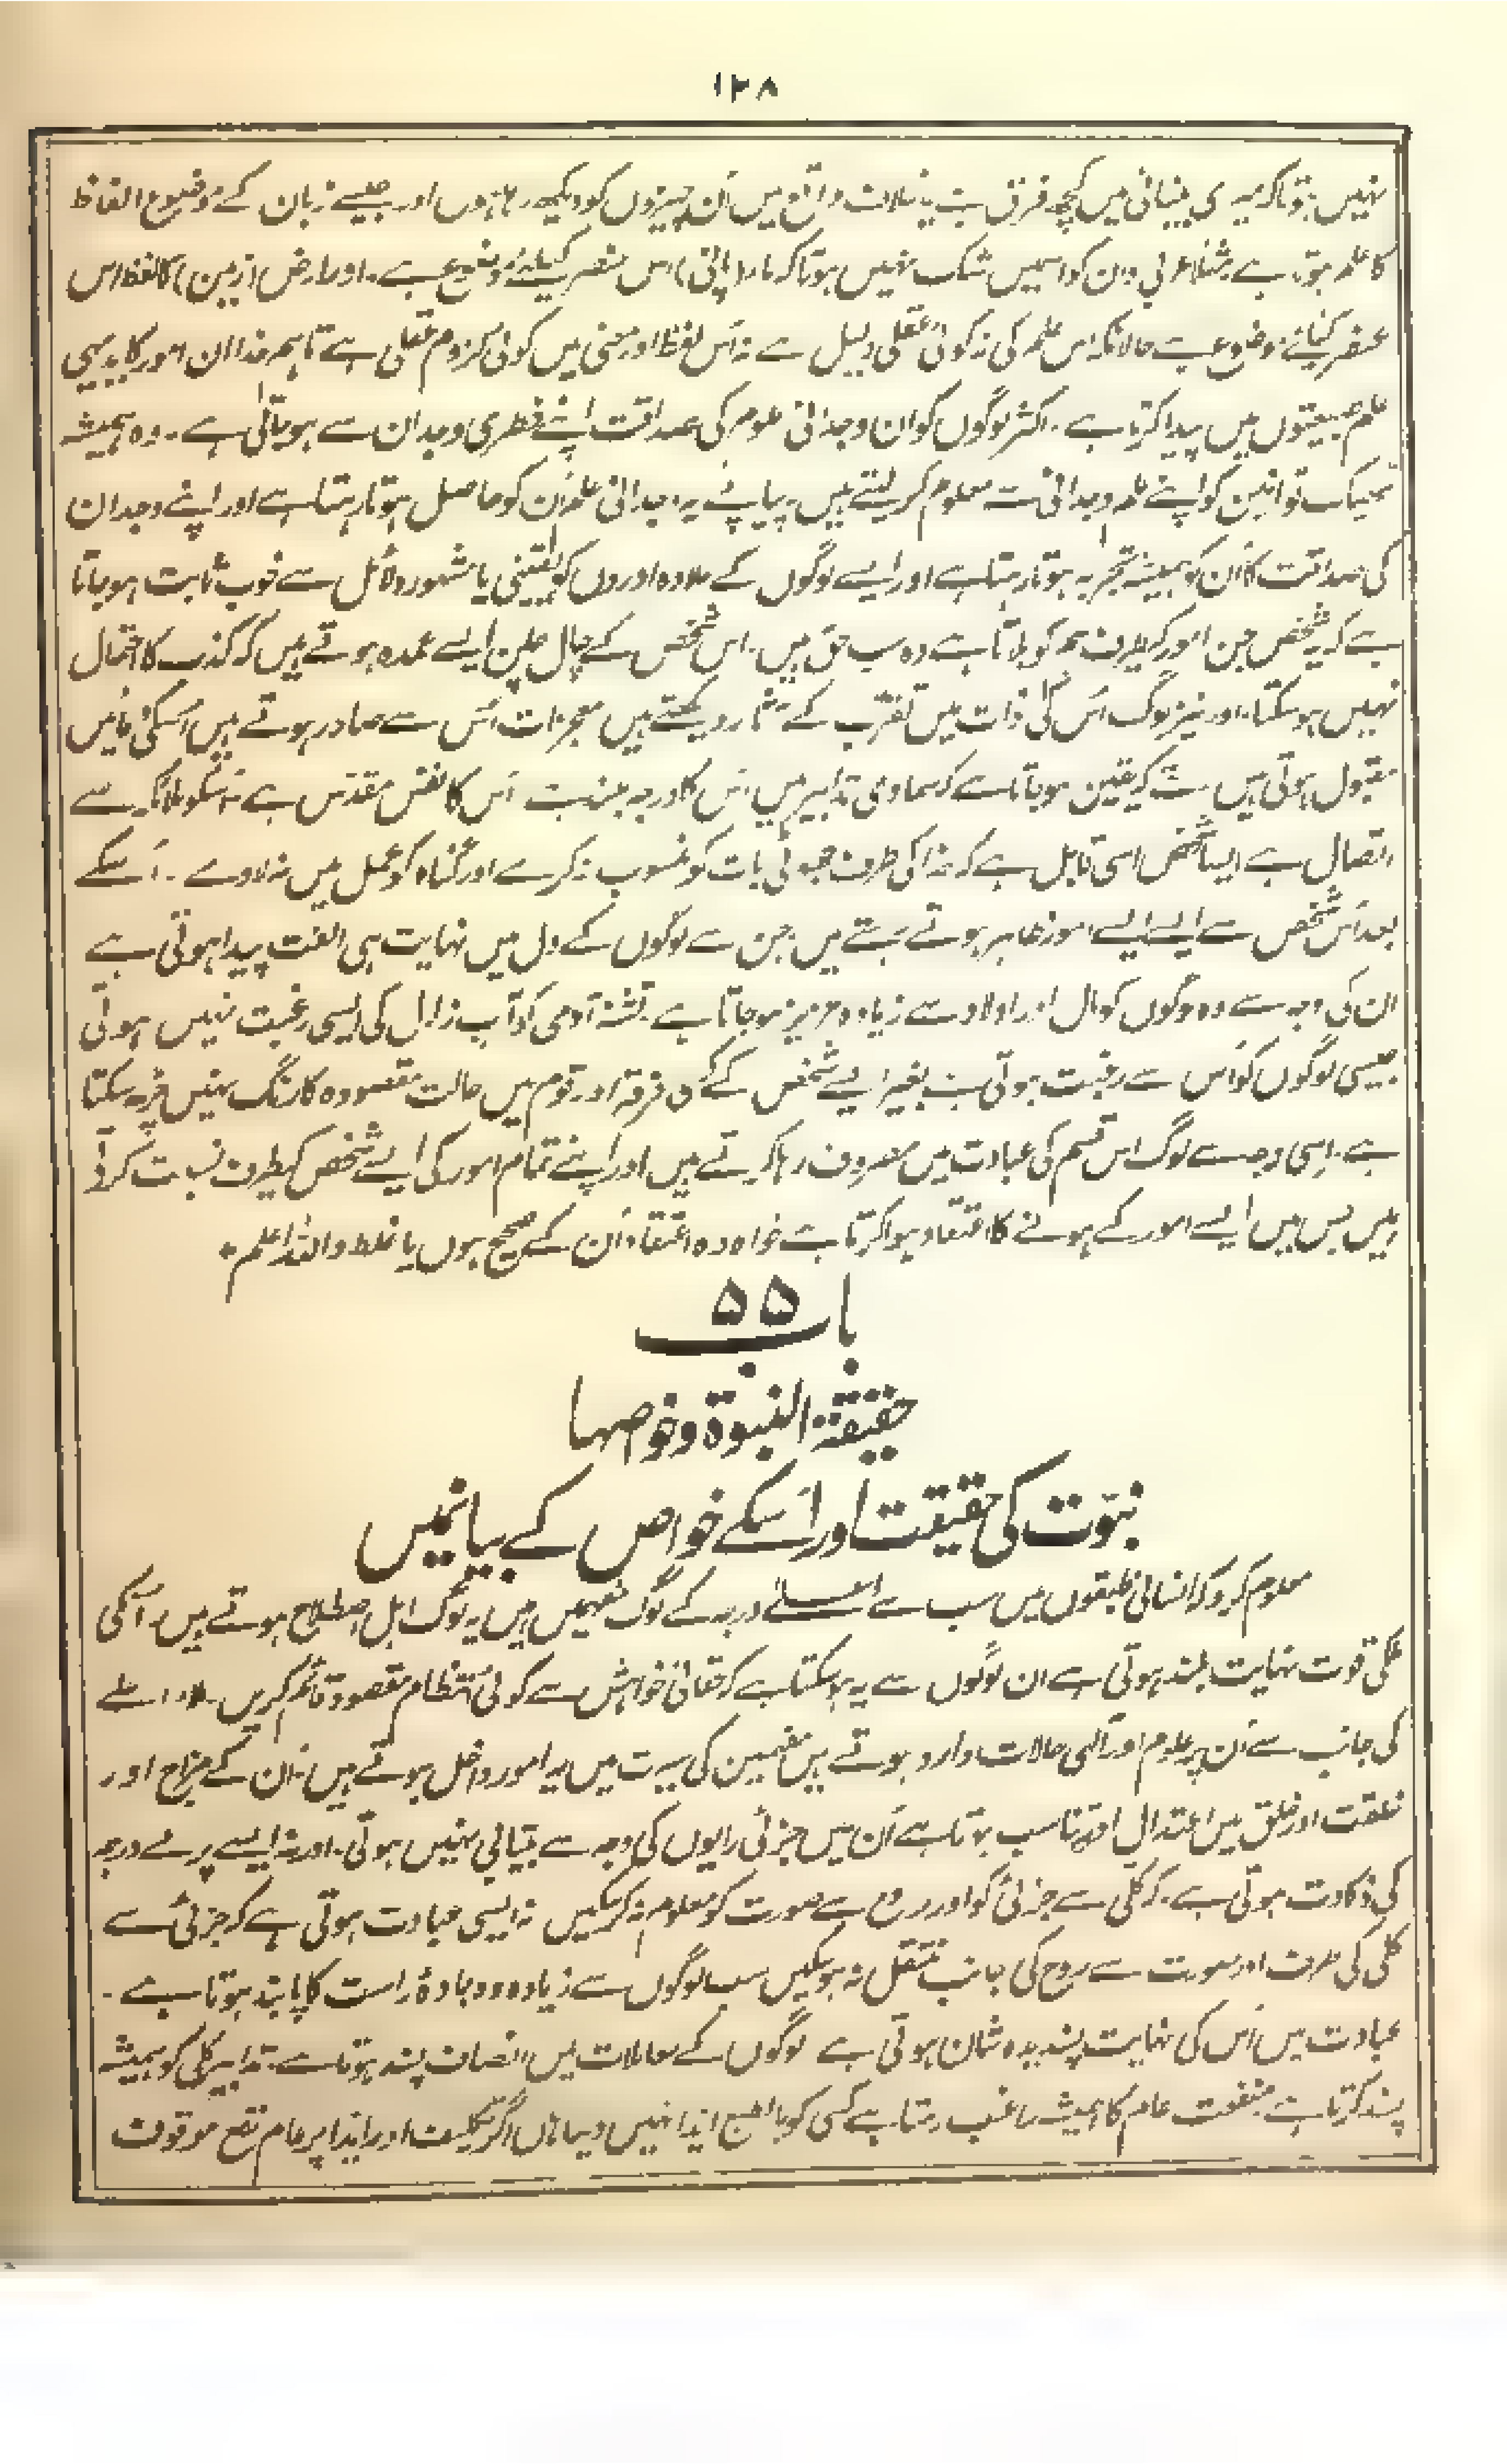 ۱۲۸
نہیں ہوتا کہ میری بینائی میں کچھ فرق ہے یا خلاف واقع میں ان چیزوں کو دیکھ رہا ہوں اور جیسے زبان کے موضوع الفاظ
کا علم ہوتا ہے مثلاً عربی دان کو اسمیں شک نہیں ہوتا کہ ماء (پانی) اس عنصر کیلئے موضوع ہے۔ اور ارض (زمین) کا لفظ اس
عنصر کیلئے موضوع ہے حالانکہ اس علم کی نہ کوئی عقلی دلیل ہے نہ اُس لفظ اور معنی میں کوئی لزوم عقلی ہے تاہم خدا ان امور کا بدیہی
علم طبیعتوں میں پیدا کرتا ہے۔ اکثر لوگوں کو ان وجدانی علوم کی صداقت اپنے فطری وجدان سے ہوجاتی ہے۔ وہ ہمیشہ
ٹھیک قوانین کو اپنے علم وجدانی سے معلوم کرلیتے ہیں پیاپے یہ وجدانی علم اُن کو حاصل ہوتا رہتا ہے اور اپنے وجدان
کی صداقت کا اُن کو ہمیشہ تجربہ ہوتا رہتا ہے اور ایسے لوگوں کے علاوہ اوروں کو یقینی یا مشہور دلائل سے خوب ثابت ہوجاتا
ہے کہ یہ شخص جن امور کیطرف ہم کو بلاتا ہے وہ سب حق ہیں۔ اس شخص کے چال چلن ایسے عمدہ ہوتے ہیں کہ کذب کا احتمال
نہیں ہوسکتا۔ اور نیز لوگ اُس کی ذات میں تقرب کے آثار دیکھتے ہیں معجزات اُس سے صادر ہوتے ہیں اُسکی دعائیں
مقبول ہوتی ہیں حتے کہ یقین ہوجاتا ہے کہ سماوی تدابیر میں اُس کا درجہ بلند ہے اُس کا نفس مقدس ہے اُسکو ملائکہ سے
اتصال ہے ایسا شخص اسی قابل ہے کہ خدا کی طرف جھوٹی بات کو منسوب نہ کرے اور گناہ کو عمل میں نہ لاوے۔ اُسکے
بعد اُس شخص سے ایسے ایسے امور ظاہر ہوتے رہتے ہیں جن سے لوگوں کے دل میں نہایت ہی الفت پیدا ہوتی ہے
ان کی وجہ سے وہ لوگوں کو مال اور اولاد سے زیادہ عزیز ہوجاتا ہے۔ تشنہ آدمی کو آب زلال کی ایسی رغبت نہیں ہوتی
جیسی لوگوں کو اُس سے رغبت ہوتی ہے بغیر ایسے شخص کے کسی فرقہ اور قوم میں حالت مقصودہ کا رنگ نہیں چڑھ سکتا
ہے۔ اسی وجہ سے لوگ اس قسم کی عبادت میں مصروف رہا کرتے ہیں اور اپنے تمام امور کی ایسے شخص کیطرف نسبت کرتے
ہیں جس میں ایسے امور کے ہونے کا اعتقاد ہوا کرتا ہے خواہ وہ اعتقاد اُن کے صحیح ہوں یا غلط واللہ اعلم۔
باب ۵۵
حقیقۃ النبوۃ وخواصہا
نبوّت کی حقیقت اور اُسکے خواص کے بیانمیں
معلوم کرو کہ انسانی طبقوں میں سب سے اعلیٰ درجہ کے لوگ مفہمین ہیں یہ لوگ اہل اصطلاح ہوتے ہیں۔ اُنکی
ملکی قوت نہایت بلند ہوتی ہے ان لوگوں سے یہ ہوسکتا ہے کہ حقانی خواہش سے کوئی انتظام مقصود قائم کریں ملاء اعلے
کی جانب سے اُن پر علوم اور الٰہی حالات وارد ہوتے ہیں مفہمین کی سیرت میں یہ امور داخل ہوتے ہیں۔ ان کے مزاج اور
خلقت اور خلق میں اعتدال اور تناسب ہوتا ہے اُن میں جزئی رایوں کی وجہ سے بیتابی نہیں ہوتی۔ اور نہ ایسے پرلے درجہ
کی ذکاوت ہوتی ہے۔ کہ کلی سے جزئی کو اور روح سے صورت کو معلوم نہ کرسکیں نہ ایسی غباوت ہوتی ہے کہ جزئی سے
کلی کی طرف اور صورت سے روح کی جانب منتقل نہ ہوسکیں سب لوگوں سے زیادہ وہ جادۂ راست کا پابند ہوتا ہے۔
عبادت میں اُس کی نہایت پسندیدہ شان ہوتی ہے لوگوں کے معاملات میں انصاف پسند ہوتا ہے۔ تدابیر کلی کو ہمیشہ
پسند کرتا ہے منفعت عام کا ہمیشہ راغب رہتا ہے کسی کو بالطبع ایذا نہیں دیتا ہاں اگر تکلیف اور ایذا پر عام نفع موقوف